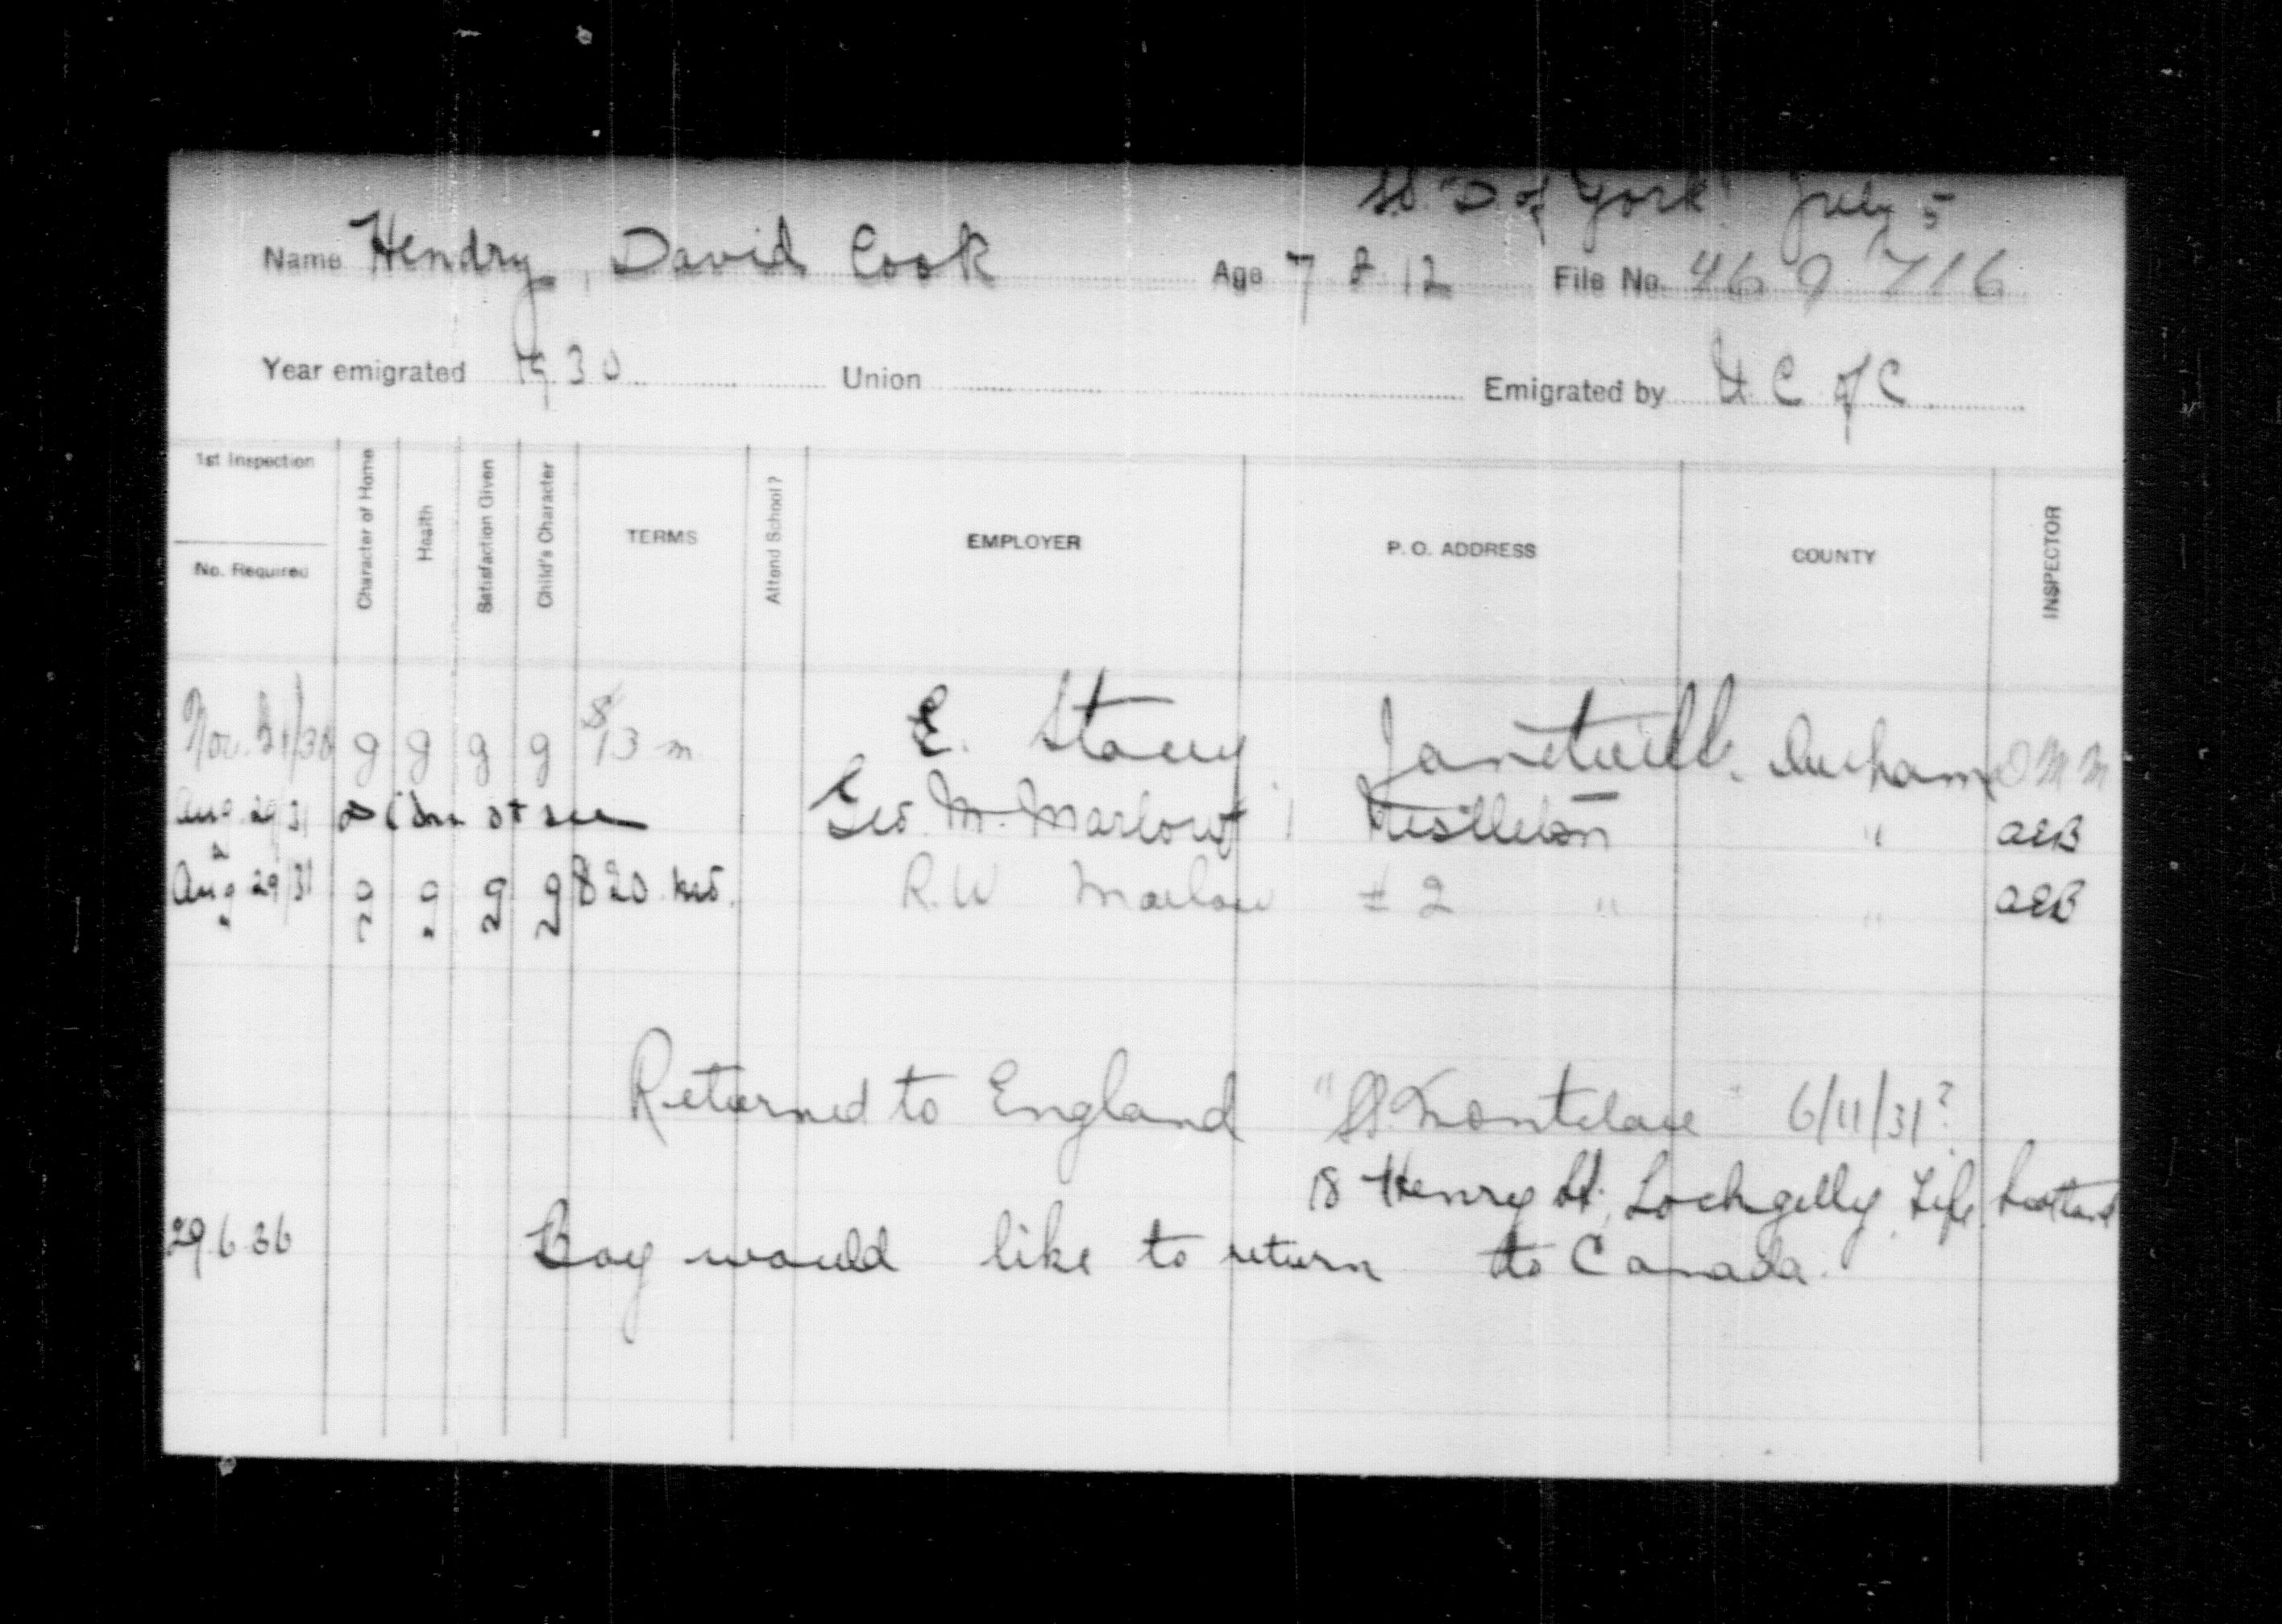 S.S. "D of York" July 5
Name Hendry, David Cook Age 7 8 12 File No. 469716
Year emigrated 1930 Union Emigrated by U C of C
1st Inspection
No. Required
Character of Home
Health
Satisfaction Given
Child's Character
TERMS
Attend School?
EMPLOYER
P. O. ADDRESS
COUNTY
INSPECTOR
Nov. 21/30 g g g g $13 m E. Stacey Janetville. Durham
Aug 29 31 did not see Geo. M. Marlow 1 Nestleton " AEB
Aug 29/31 g g g g $20 R. W Marlow # 2 " " AEB
Returned to England "SS. Montclare" 6/11/31?
18 Henry St, Lochgelly, Fife Scotland
29.6.36 Boy would like to return to Canada.